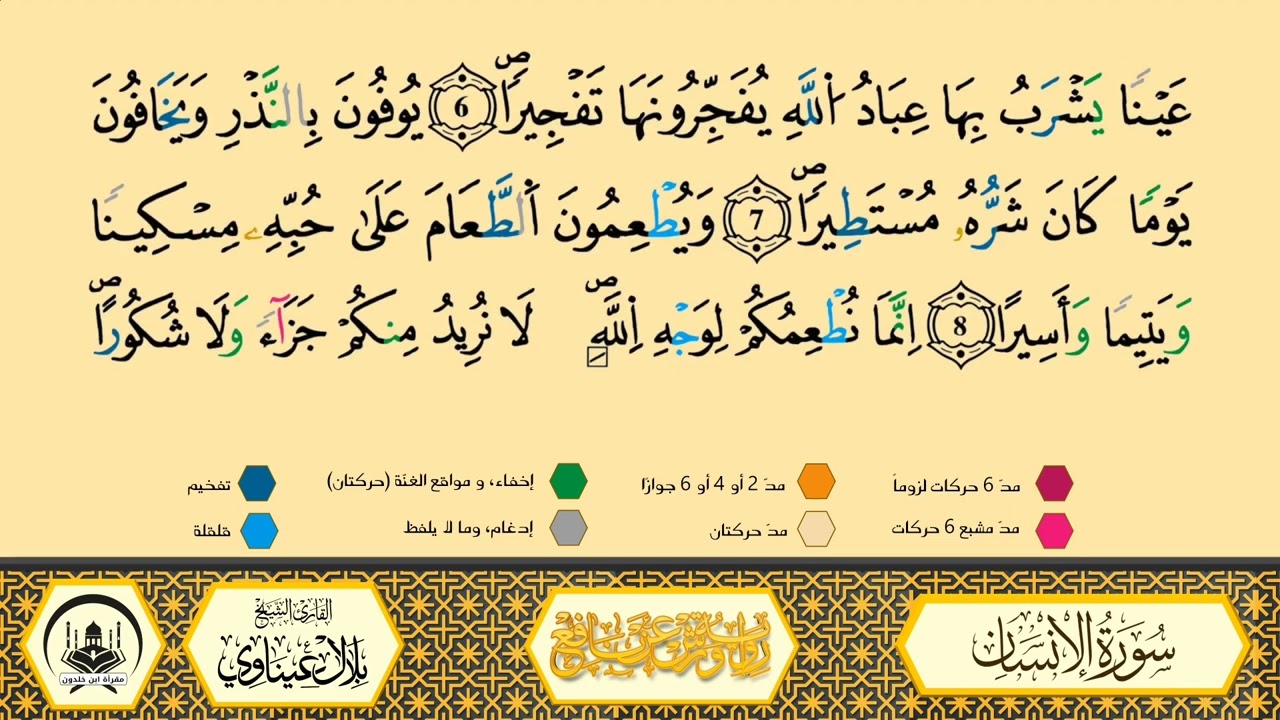 عَيْنًا يَشْرَبُ بِهَا عِبَادُ اُللَّهِ يُفَجِّرُونَهَا تَفْجِيرًاۖ 6 يُوفُونَ بِالنَّذْرِ وَيَخَافُونَ
يَوْمًا كَانَ شَرُّهُۥ مُسْتَطِيرًاۖ 7 وَيُطْعِمُونَ اَلطَّعَامَ عَلَىٰ حُبِّهِۦ مِسْكِينًا
وَيَتِيمًا وَأَسِيرًا 8 اِنَّمَا نُطْعِمُكُمْ لِوَجْهِ اِللَّهِۖ لَا نُرِيدُ مِنكُمْ جَزَآءً وَلَا شُكُورًاۖ
مدّ 6 حركات لزوماً مدّ 2 أو 4 أو 6 جوازًا إخفاء، و مواقع الغنّة (حركتان) تفخيم
مدّ مشبع 6 حركات مدّ حركتان إدغام، وما لا يلفظ قلقلة
سُورَةُ الإِنْسَانِ
رواية ورش عن نافع
القارئ الشيخ
بلال عيناوي
مقرأة ابن خلدون